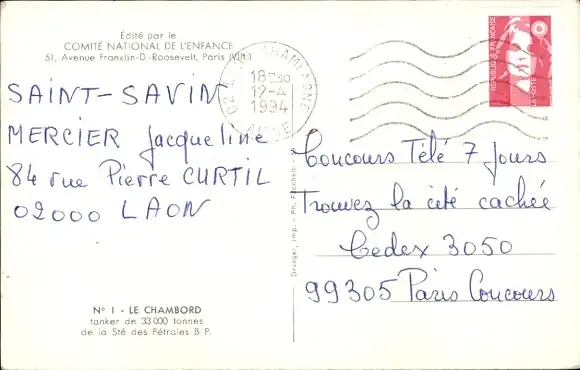 Édité par le
COMITÉ NATIONAL DE L'ENFANCE
51, Avenue Franklin-D.-Roosevelt, Paris (VIIIe)
SAINT-SAVIN
MERCIER Jacqueline
84 rue Pierre CURTIL
02000 LAON
N° 1 - LE CHAMBORD
tanker de 33 000 tonnes
de la Sté des Pétroles B P.
02 CHAMPAGNE
18H30
12-4
1994
AISNE
Draeger, Imp. - Ph.
REPUBLIQUE FRANÇAISE
LA POSTE
Concours Télé 7 Jours
Trouvez la cité cachée
Cedex 3050
99305 Paris Concours